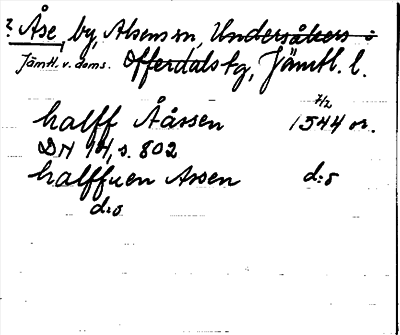 ? Åse, by, Alsens sn, Undersåkers o
Jämtl. v. doms. Offerdals tg, Jämtl. l.
7/2
halff Ååssen 1544 or.
DN 14, s. 802
halffuen Assen d:o
d:o